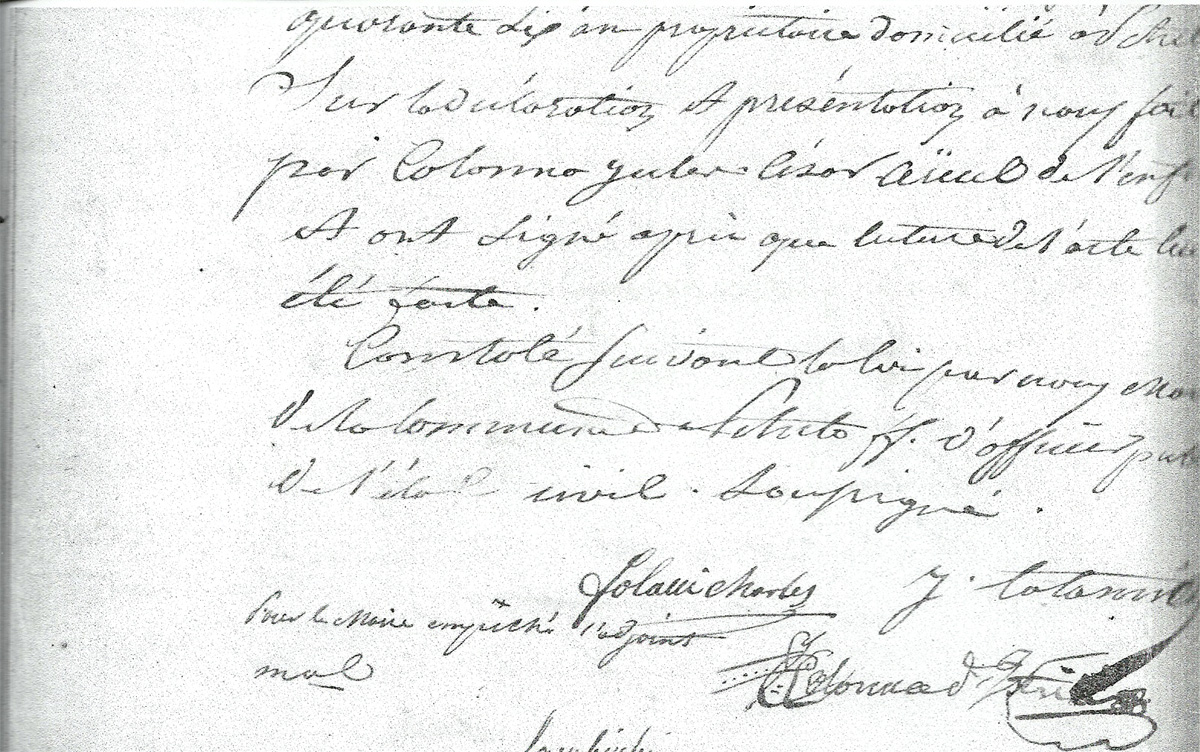 quarante six an propriétaire domicilié à
Sur la déclaration et présentation à nous fait
par Colonna Jules César aïeul de l'enf
et ont signé après que lecture de l'acte leur
été faite.
Constaté suivant la loi par nous Mai
de la Commune de ff. d'officier pub
de l'état civil. Soussigné.
Charles J. Colonna
Pour le Maire empêché l'adjoint
mal Colonna d'